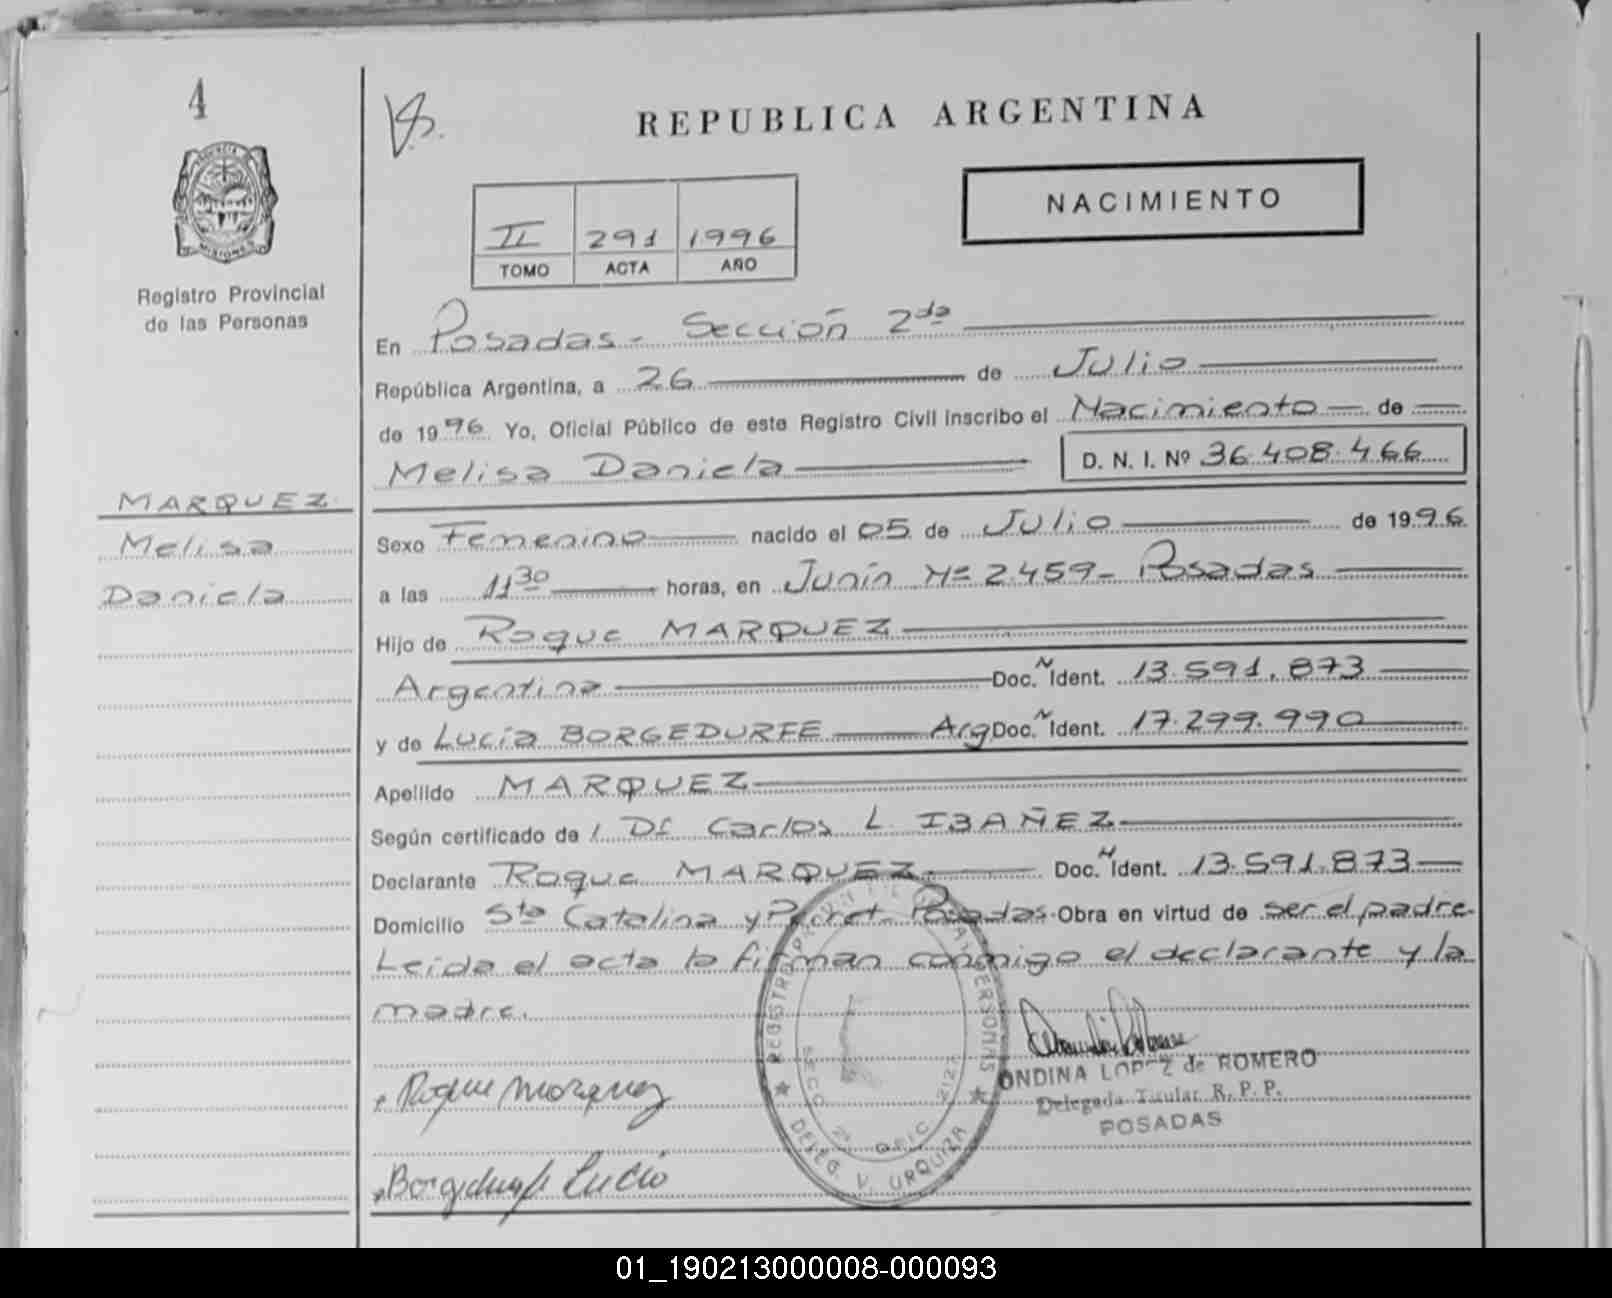 4
REPUBLICA ARGENTINA
PROVINCIA DE
MISIONES
NACIMIENTO
II 291 1996
TOMO ACTA AÑO
Registro Provincial
de las Personas
En Posadas - Sección 2da
República Argentina, a 26 de Julio
de 1996. Yo, Oficial Público de este Registro Civil inscribo el Nacimiento de
Melisa Daniela D. N. I. Nº 36.408.466
MARQUEZ
Melisa
Daniela
Sexo Femenino nacido el 05 de Julio de 1996
a las 11 30 horas, en Junín Nº 2459 - Posadas
Hijo de Roque MARQUEZ
Argentina Doc. N Ident. 13.591.873
y de Lucía BORGEDURFE Arg Doc. N Ident. 17.299.990
Apellido MARQUEZ
Según certificado de l Dr Carlos L. IBAÑEZ
Declarante Roque MARQUEZ Doc. N Ident. 13.591.873
Domicilio Sta Catalina y Posadas - Obra en virtud de ser el padre
Leida el acta la firman conmigo el declarante y la
madre.
REGISTRO PERSONAS
SECC. 2ª
DELEG. V. URQUIZA
ONDINA LOPEZ de ROMERO
Delegada Titular R. P. P.
POSADAS
Roque Marquez
Borgedurfe Lucía
01_190213000008-000093